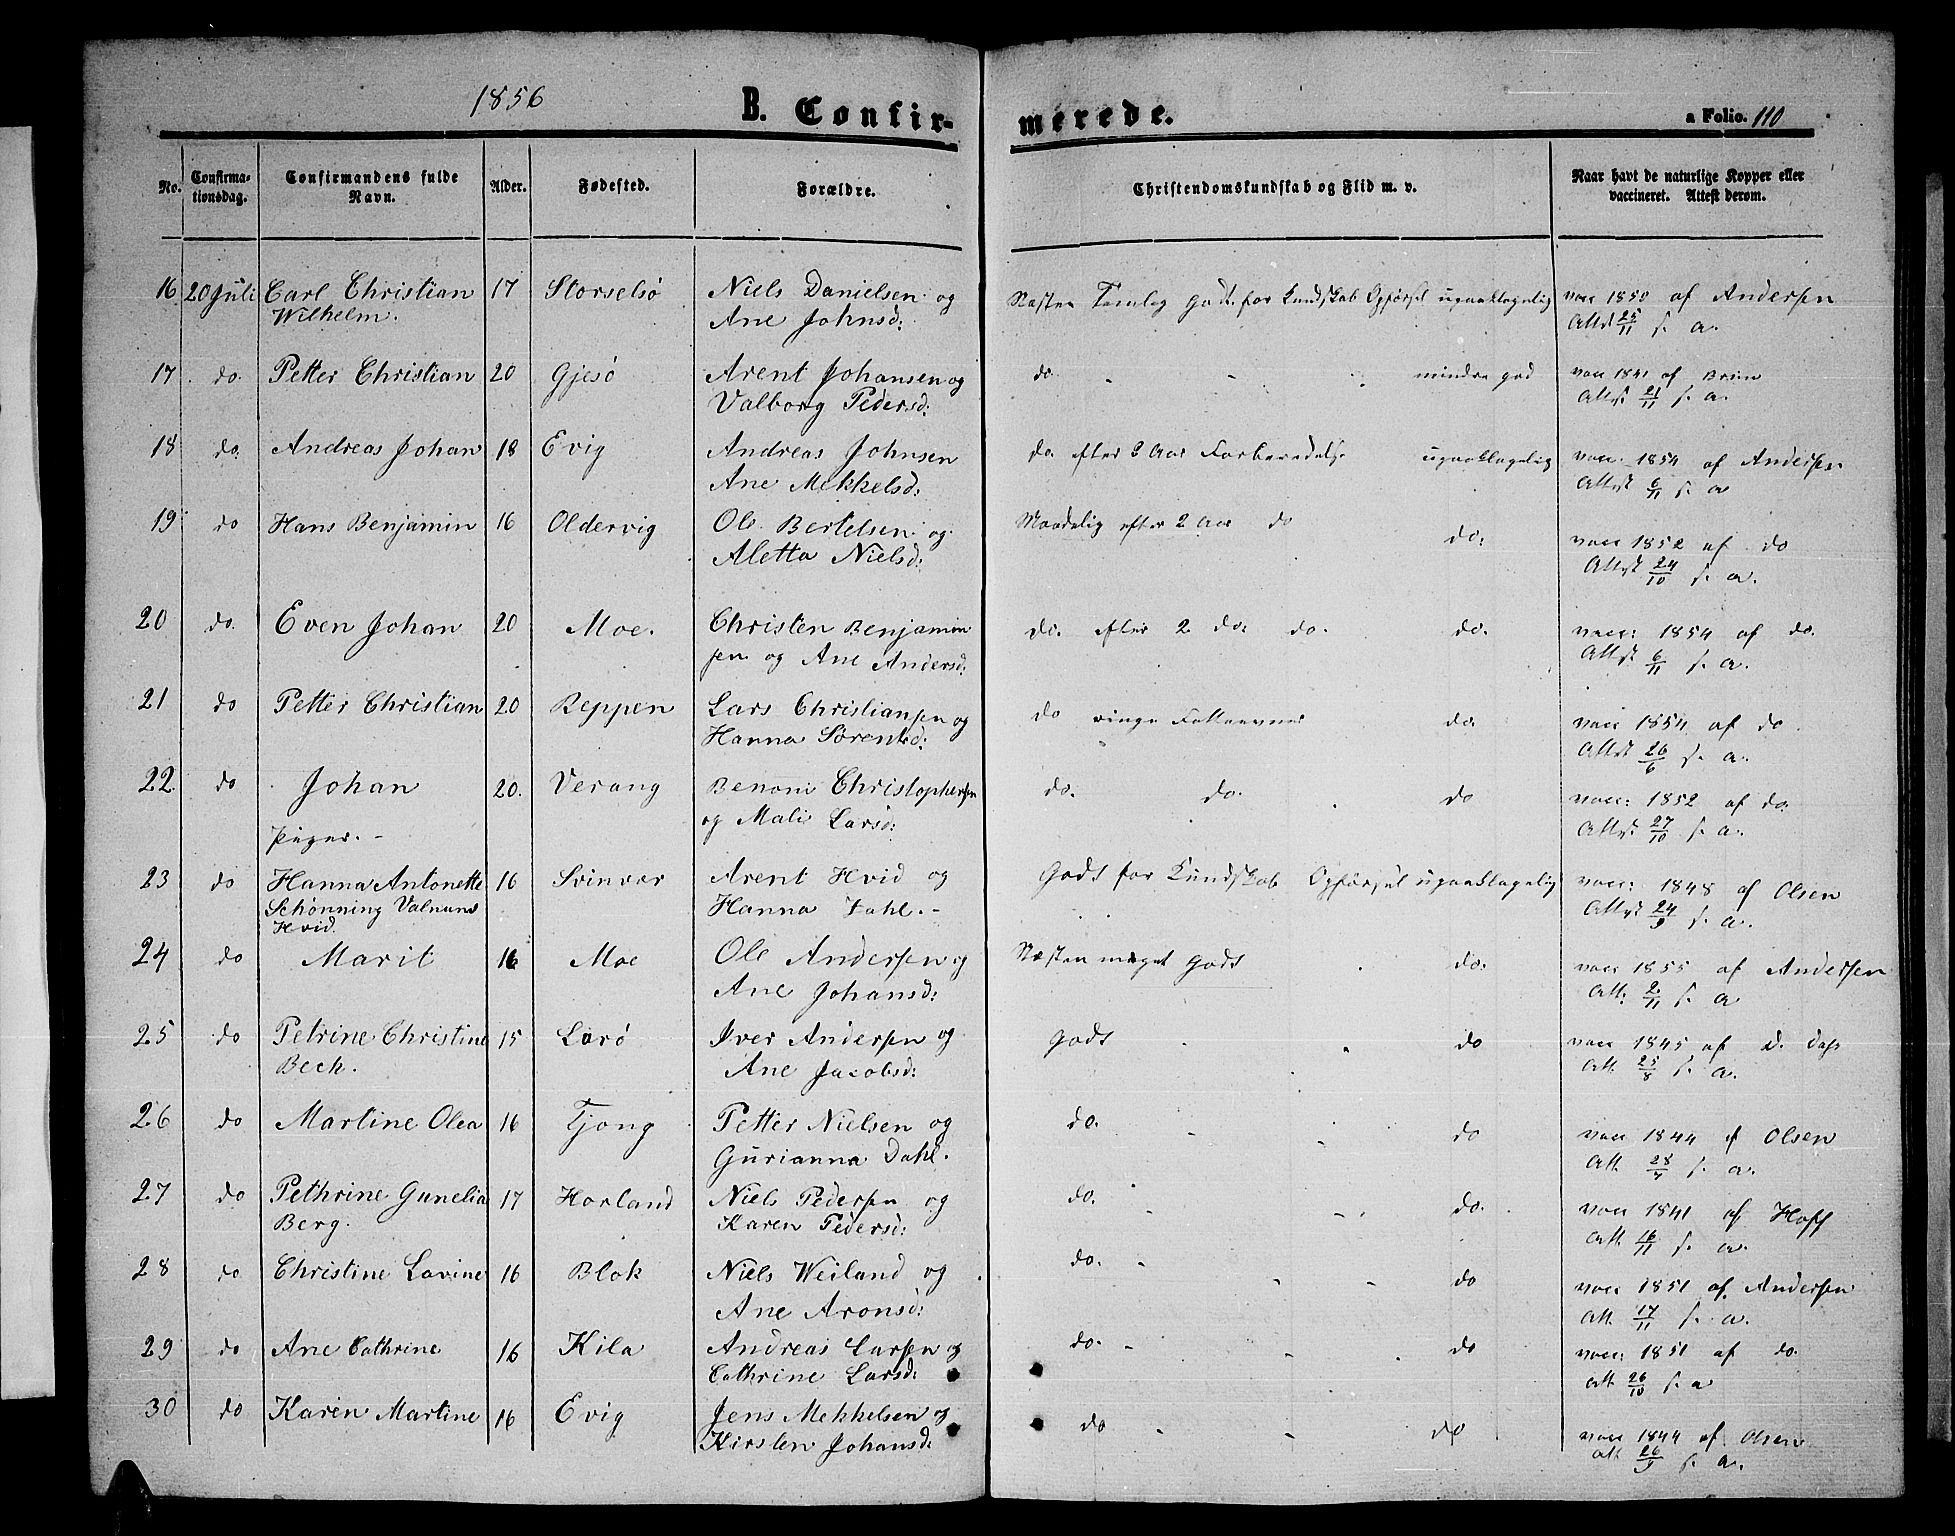 1856
B. Confir-
merede.
a Folio. 110
No.
Confirma-
tionsdag.
Confirmandens fulde
Navn.
Alder.
Fødested.
Forældre.
Christendomskundskab og Flid m. v.
Naar havt de naturlige Kopper eller
vaccineret. Attest derom.
16 20 Juli Carl Christian 17 Storselsø Niels Danielsen og Næsten Temlig godt for Kundskab Opførsel upaaklagelig vacc 1850 af Andersen
Wilhelm. Ane Johnsd: Attst 25/11 s. a.
17 do. Petter Christian 20 Gjesø Arent Johansen og do. mindre god vacc 1841 af Brun
Valborg Pedersd: Attst 21/11 s. a.
18 do. Andreas Johan 18 Evig Andreas Johnsen do. efter 3 Aar Forberedelse upaaklagelig vacc. 1854 af Andersen
Ane Mekkelsd: Attst 6/11 s. a
19 do Hans Benjamin 16 Oldervig Ole Bertelsen og Maadelig efter 2 Aar do do: vacc 1852 af do
Aletta Nielsd: Attst 24/10 s. a.
20 do. Even Johan 20 Moe. Christen Benjamin do. efter 2 do: do. do. vacc: 1854 af do.
sen og Ane Andersd: Attst 6/11 s. a.
21 do Petter Christian 20 Reppen Lars Christiansen og do ringe Fatteevner do. vacc 1854 af do.
Hanna Sørensd: Attst 26/6 s. a.
22 do Johan 20. Verang Benoni Christophersen do. do. do vacc: 1852 af do.
og Mali Larsd: Attst 27/10 s. a.
Piger. -
23 do Hanna Antonette 16 Svinvær Arent Hvid og Godt for Kundskab Opførsel upaaklagelig vacc: 1848 af Olsen
Schønning Hanna Dahl. - Attst 24/9 s. a.
Hvid.
24 do Marit 16 Moe Ole Andersen og Næsten meget godt do. vacc 1855 af Andersen
Ane Johansd: Att. 2/11 s. a
25 do Petrine Christine 15 Larø Iver Andersen og Godt do vacc 1845 af D. Dass
Bech. Ane Jacobsd: Att. 25/8 s. a.
26 do Martine Olea 16 Tjong Petter Nielsen og do. do vacc 1844 af Olsen
Gurianna Dahl. Att. s. a.
27 do Pethrine Gunelia 17 Horland Niels Pedersen og do. do. vacc 1841 af Hoff
Berg. Karen Pedersd: Att. 16/11 s. a.
28 do Christine Lovine 16 Blok Niels Weiland og do. do vacc 1851 af Andersen
Ane Aronsd: Att. 17/11 s. a.
29 do Ane Cathrine 16 Kila Andreas Larsen og do. do vacc: 1851 af do.
Cathrine Larsd: Att. 26/10 s. a
30 do Karen Martine 16 Evig Jens Mekkelsen og do do vacc 1844 af Olsen
Kirsten Johansd. att. 26/9 s. a.